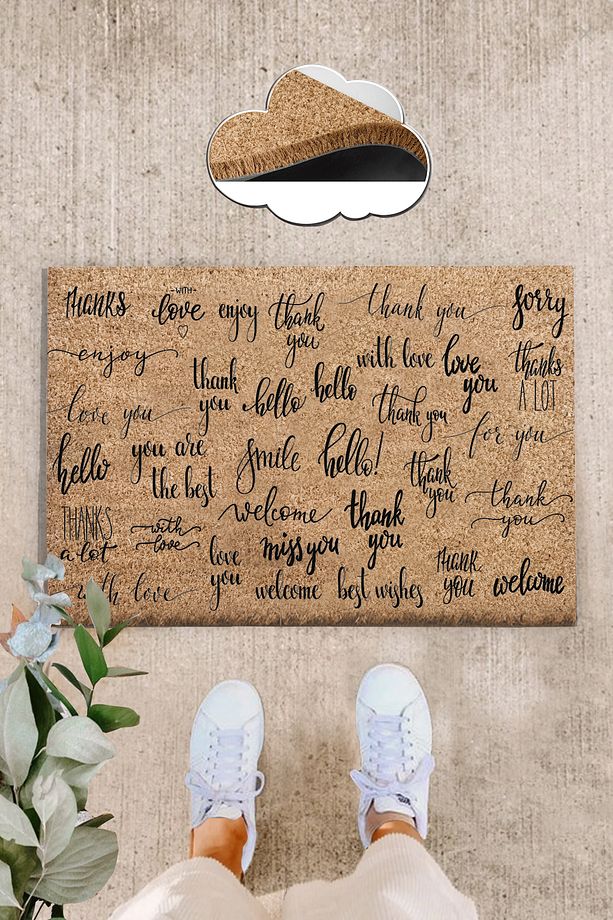 thanks
- WITH -
love
enjoy
thank
you
thank you
sorry
enjoy
with love
love
you
thanks
A LOT
thank
you
hello
hello
love you
thank you
for you
hello
you are
the best
smile
hello!
thank
you
thank
you
THANKS
a lot
with
love
welcome
thank
you
love
you
miss you
thank
you
welcome
with love
welcome
best wishes